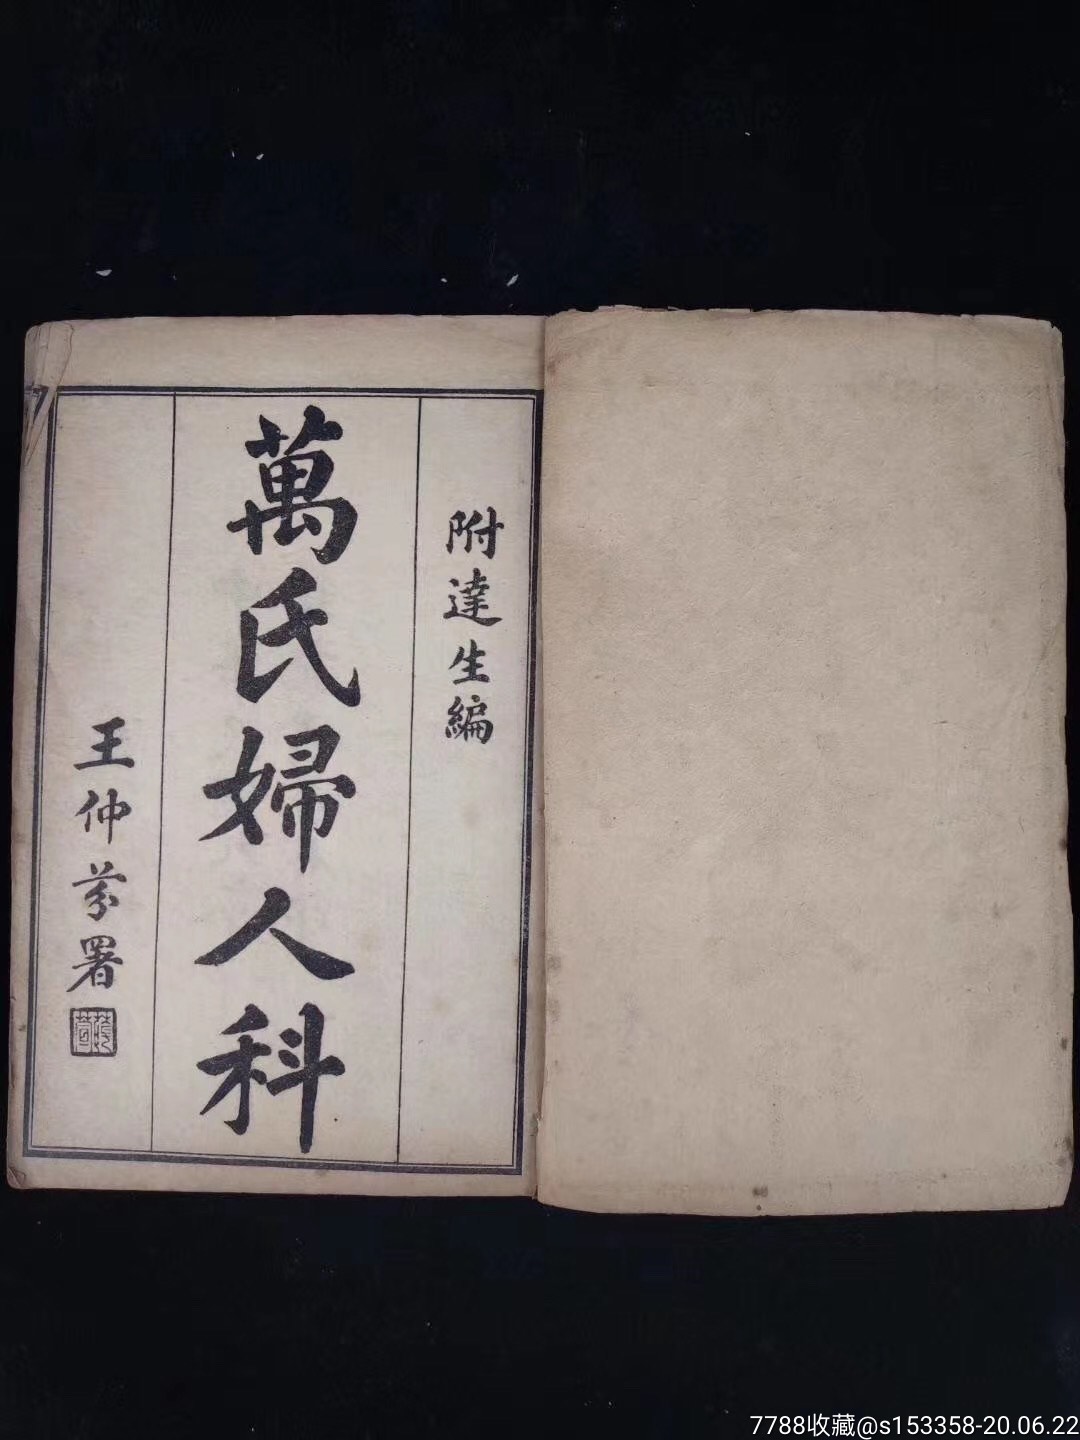 附達生編
萬氏婦人科
王仲芬署
7788收藏@s153358-20.06.22